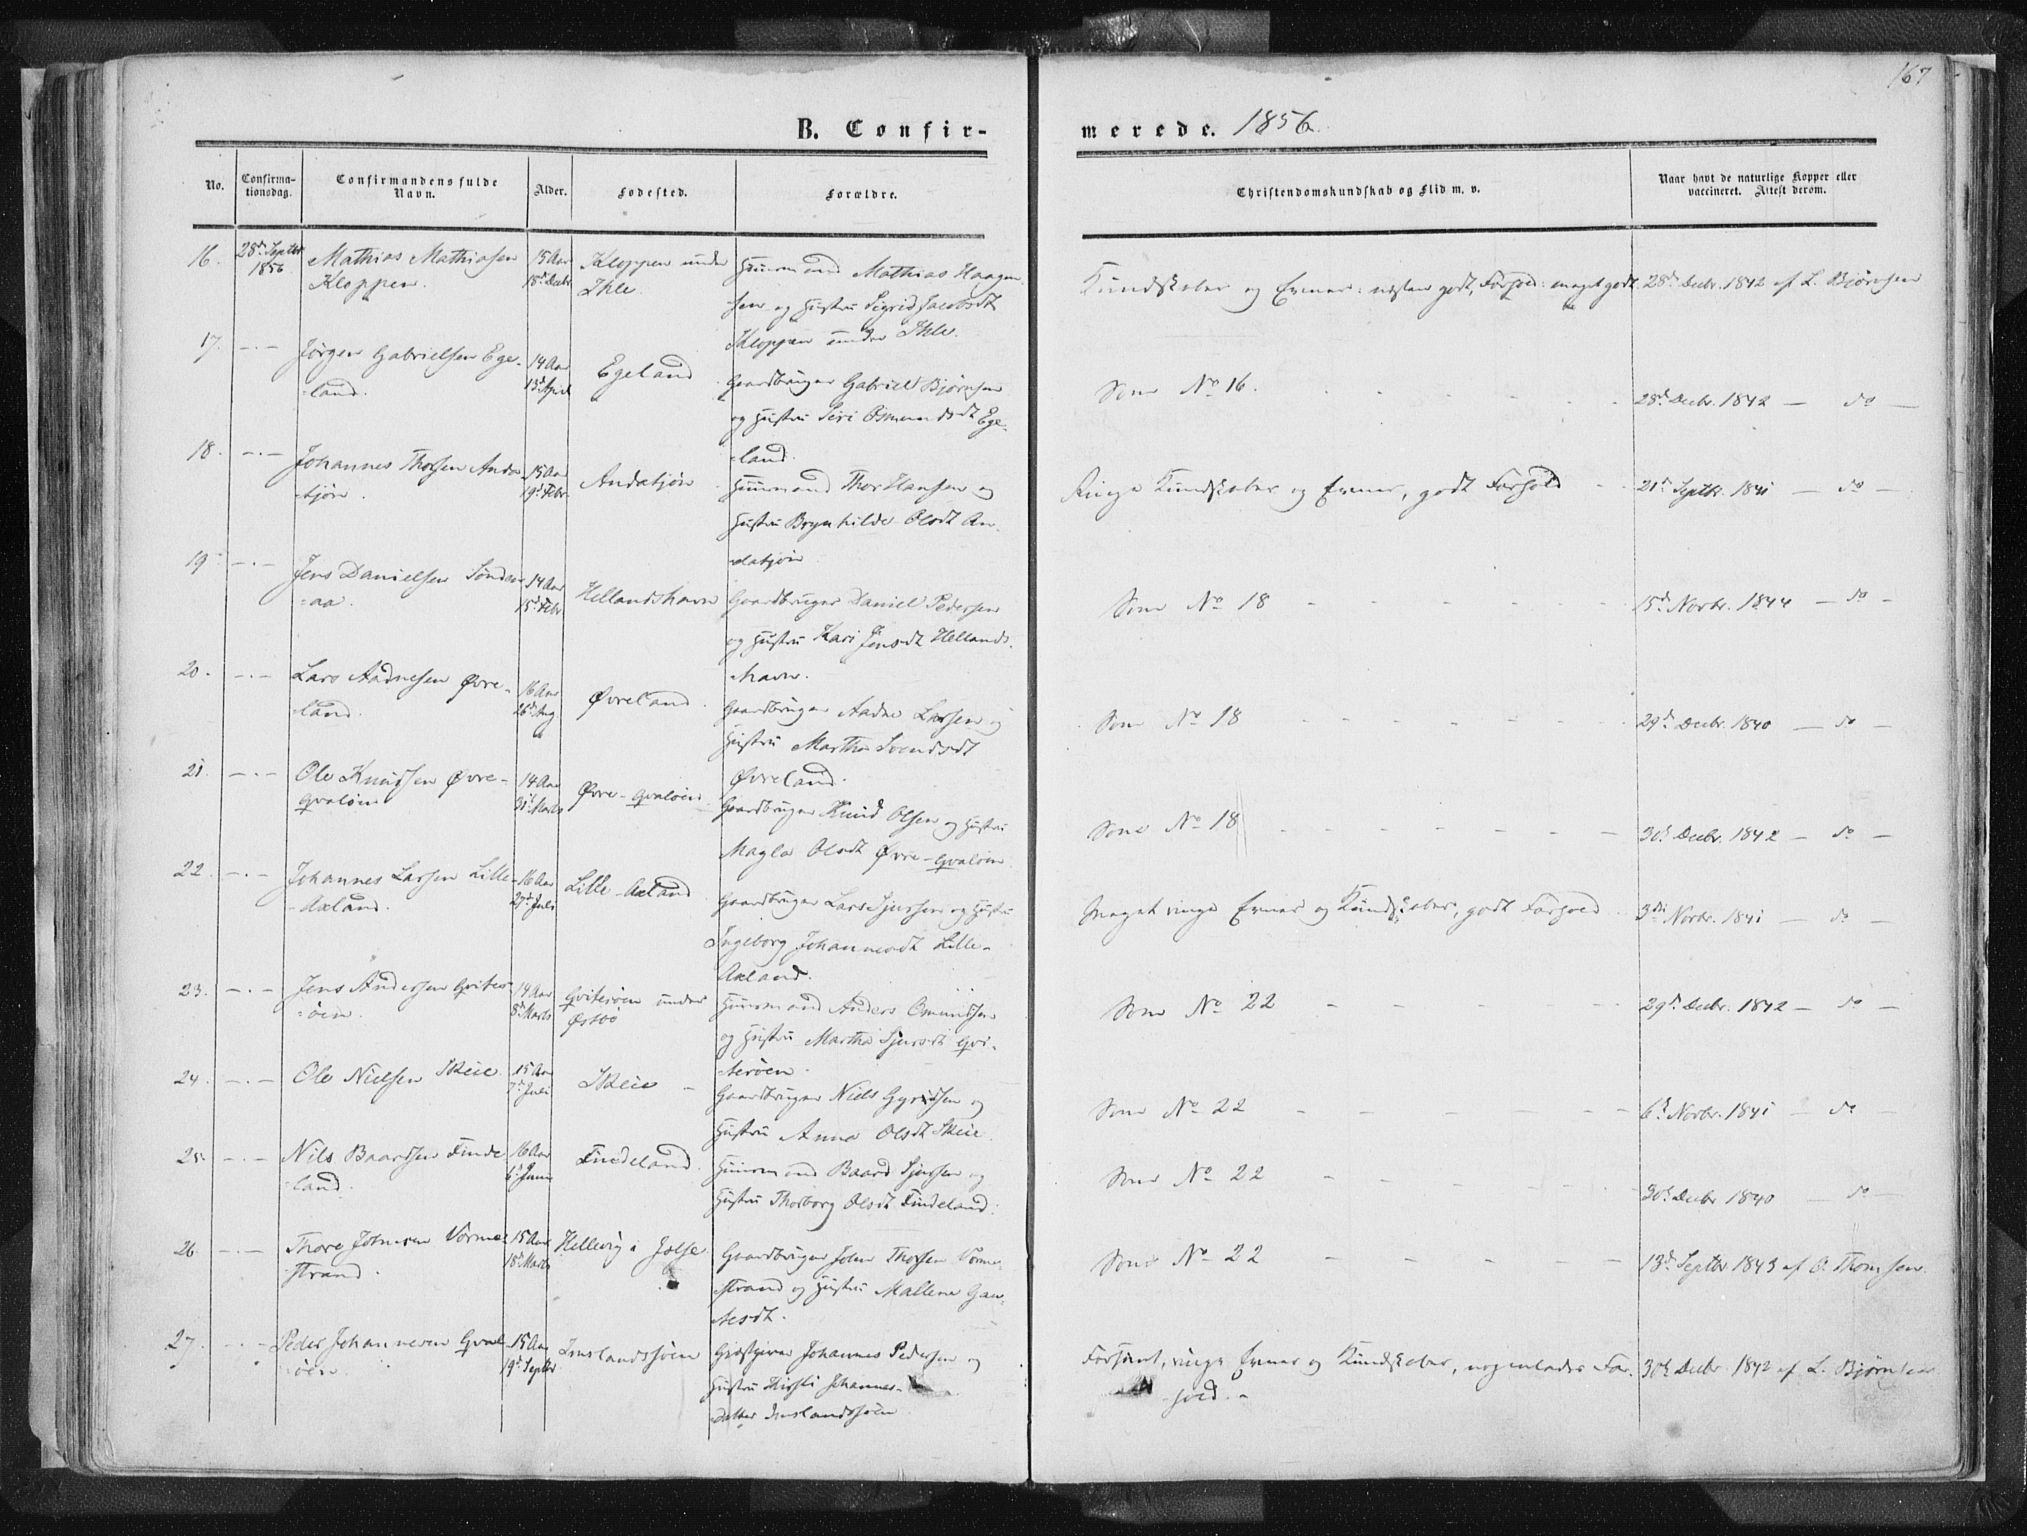 167
B. Confir-
merede. 1856.
No.
Confirma-
tionsdag.
Confirmandens fulde
Navn.
Alder.
Fødested.
Forældre.
Christendomskundskab og Flid m. v.
Naar havt de naturlige Kopper eller
vaccineret. Attest derom.
16. 28de Septbr 1856 Mathias Mathiasen Kloppen. 15 Aar 18d Decbr. Kloppen under Ihle.
Huusmand Mathias Haagen-
sen og Hustru Sigrid Jacobsdt
Kloppen under Ihle.
Kundskaber og Evner: næsten godt, Forhold: meget godt. 28d Decbr. 1842 af L. Bjørnsen
17. —.— Jørgen Gabrielsen Ege-
-land. 14 Aar 13d April Egeland
Gaardbruger Gabriel Bjørnsen
og Hustru Siri Osmundsdt Ege-
-land.
Som No 16. 28d Decbr. 1842 — do —
18. —.— Johannes Thorsen Anda-
-tjøn. 15 Aar 19d Febr. Andatjøn
Huusmand Thor Hansen og
Hustru Brynhilde Olsdt An-
-datjøn
Ringe Kundskaber og Evner, godt Forhold 21d Septbr. 1841 — do —
19. —.— Jens Danielsen Sønden-
-aa. 14 Aar 15d Febr. Hellandshavn
Gaardbruger Daniel Pedersen
og Hustru Kari Jensdt Hellands-
-havn.
Som No 18 15d Novbr. 1844 — do —
20. —.— Lars Aadnesen Øvre-
-land. 16 Aar 26d Aug. Øvreland
Gaardbruger Aadne Larsen og
Hustru Martha Svendsdt
Øvreland.
Som No 18 29d Decbr. 1840 — do —
21. —.— Ole Knudsen Øvre-
Qvaløen 14 Aar 31d Marts Øvre-Qvaløen.
Gaardbruger Knud Olsen og Hustru
Magla Olsdt Øvre-Qvaløen
Som No 18 30d Decbr. 1842 — do —
22. —.— Johannes Larsen Lille-
-Axland. 16 Aar 27d Juli Lille-Axland
Gaardbruger Lars Sjursen og Hustru
Ingeborg Johannesdt Lille-
Axland.
Meget ringe Evner og Kundskaber, godt Forhold 3die Novbr. 1841 — do —
23. —.— Jens Andersen Qviter-
-øen. 14 Aar 8d Marts Qviterøen under
Østbø
Huusmand Anders Omundsen
og Hustru Martha Sjursdt Qvi-
-terøen.
Som No 22 29d Decbr. 1842 — do —
24. —.— Ole Nielsen Skeie 15 Aar 7d Juli Skeie
Gaardbruger Niels Gyridsen og
Hustru Anna Olsdt Skeie.
Som No 22 6d Novbr. 1841 — do —
25. —.— Nils Baardsen Finde-
-land. 16 Aar 6d Findeland.
Huusmand Baard Sjursen og
Hustru Thorborg Olsdt Findeland.
Som No 22 30d Decbr 1840 — do —
26. —.— Thore Johnsen Vorme-
strand. 15 Aar 18d Marts Hellevig i Jølse
Gaardbruger John Thorsen Vorme-
strand og Hustru Mallene Gau-
tesdt.
Som No 22 13d Septbr 1843 af O. Thomsen.
27. —.— Peder Johannesen Qval-
-øen. 15 Aar 19d Septbr Imslandsjøen
Gjæstgiver Johannes Pedersen og
Hustru Johannes-
-datter Imslandsjøen.
Forsømt, ringe Evner og Kundskaber, nogenlunde For-
hold.
30d Decbr 1842 af L. Bjørnsen